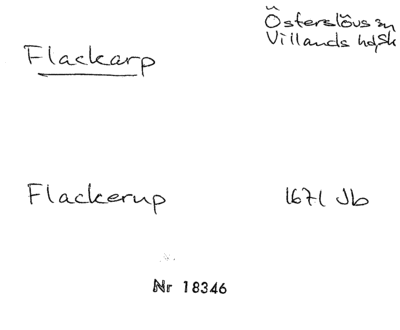 Österslövs sn
Villands hd, Sk
Flackarp
Flackerup
1671 Jb
Nr 18346